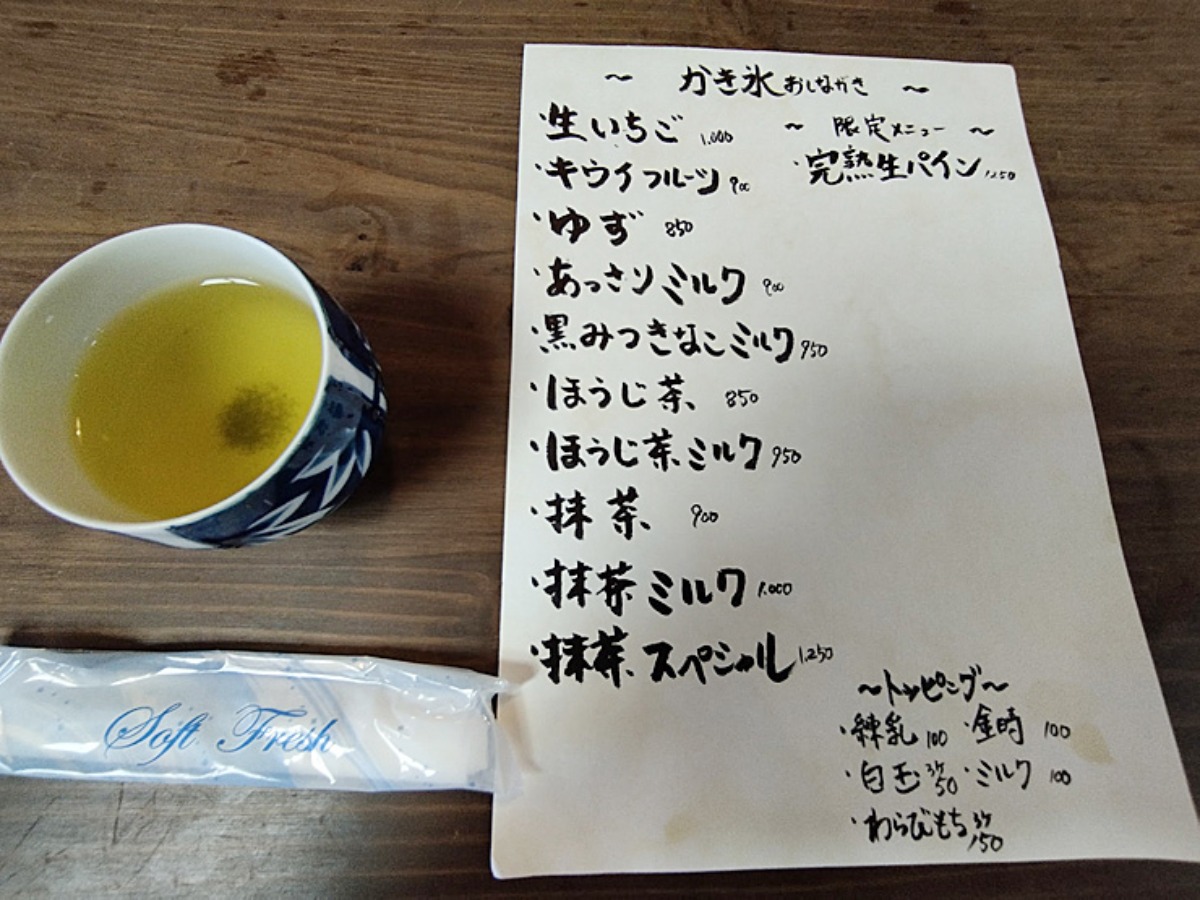 ～ かき氷おしながき ～
・生いちご 1,000
・キウイフルーツ 900
・ゆず 850
・あっさりミルク 900
・黒みつきなこミルク 950
・ほうじ茶 850
・ほうじ茶ミルク 950
・抹茶 900
・抹茶ミルク 1,000
・抹茶スペシャル 1,250
～ 限定メニュー ～
・完熟生パイン 1,250
～トッピング～
・練乳 100 ・金時 100
・白玉 3ケ 50 ・ミルク 100
・わらびもち 3ケ 150
Soft Fresh